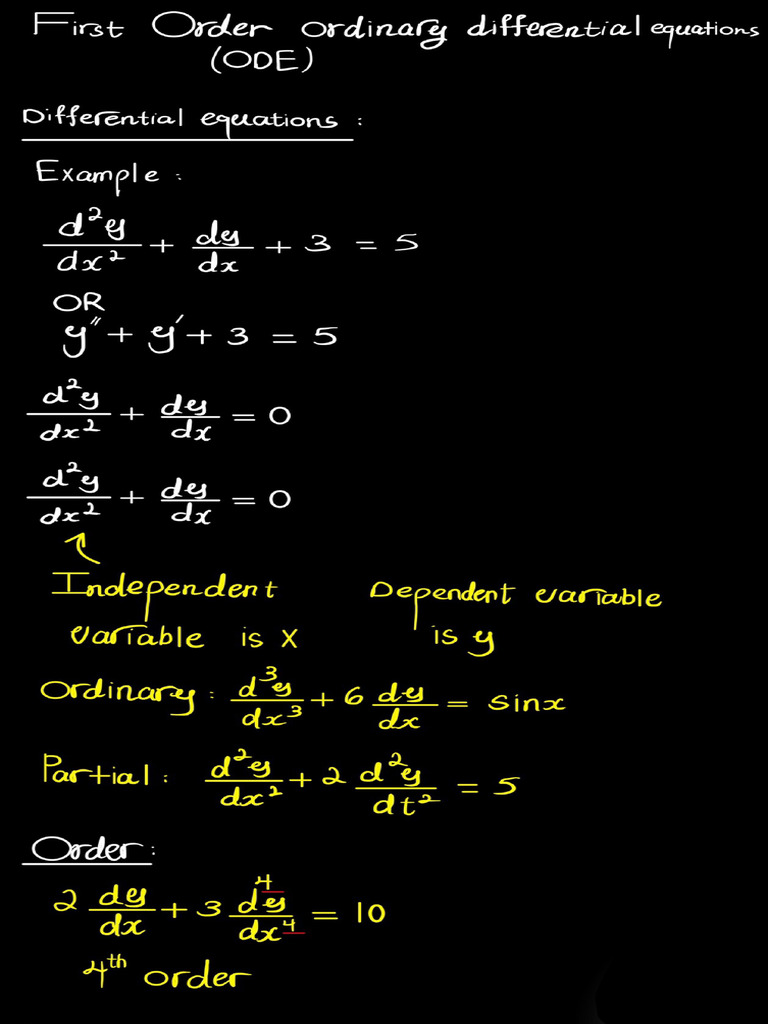 First Order ordinary differential equations
(ODE)
Differential equations :
Example :
d²y/dx² + dy/dx + 3 = 5
OR
y″ + y′ + 3 = 5
d²y/dx² + dy/dx = 0
d²y/dx² + dy/dx = 0
Independent Dependent variable
variable is X is y
Ordinary : d³y/dx³ + 6 dy/dx = sinx
Partial : d²y/dx² + 2 d²y/dt² = 5
Order :
2 dy/dx + 3 d⁴y/dx⁴ = 10
4th order